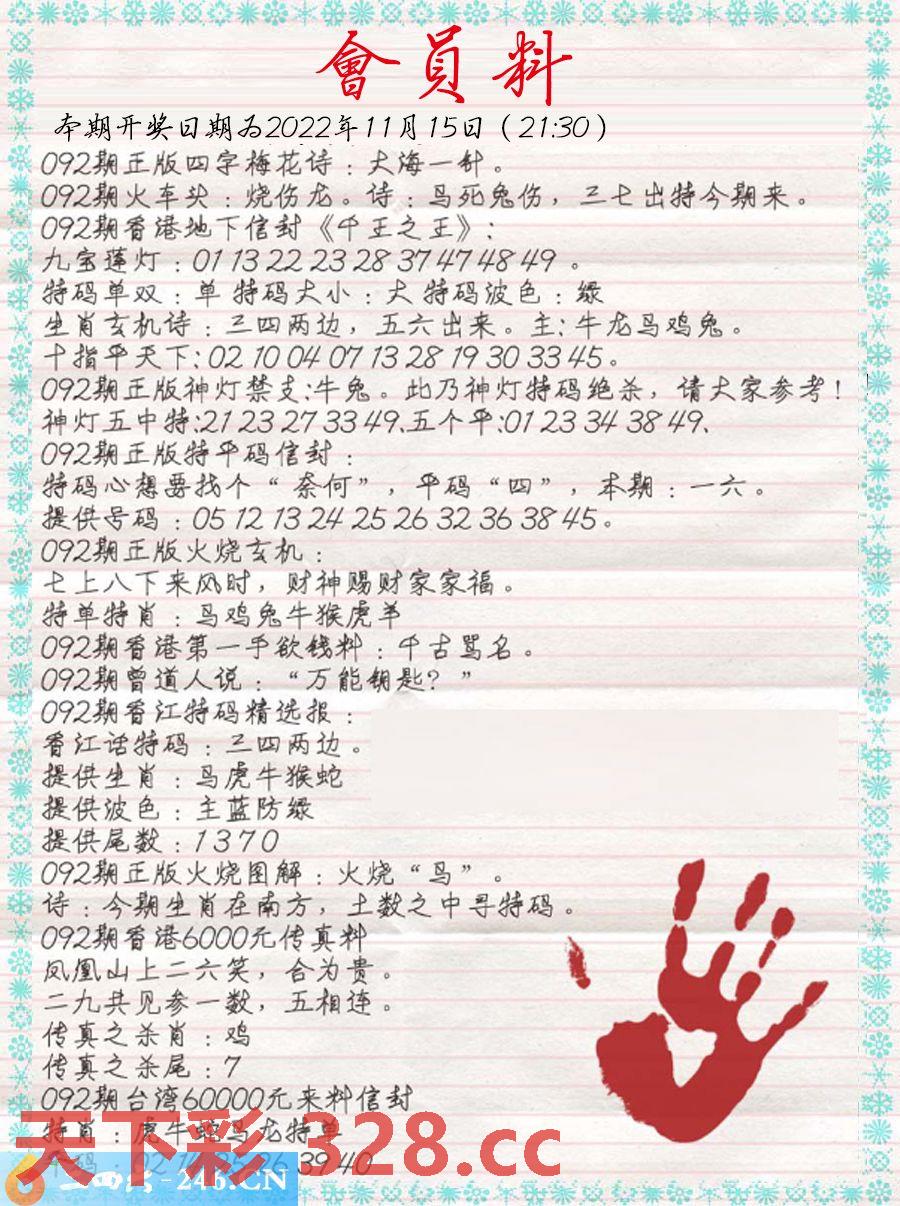 會員料
本期开奖日期为2022年11月15日（21:30）
092期正版四字梅花诗：大海一针。
092期火车头：烧伤龙。诗：鸟死兔伤，三七出特今期来。
092期香港地下信封《千王之王》:
九宝莲灯：01 13 22 23 28 37 47 48 49 。
特码单双：单 特码大小：大 特码波色：绿
生肖玄机诗：三四两边，五六出来。主:牛龙马鸡兔。
十指平天下:02 10 04 07 13 28 19 30 33 45。
092期正版神灯禁支:牛兔。此乃神灯特码绝杀，请大家参考！
神灯五中特:21 23 27 33 49.五个平:01 23 34 38 49.
092期正版特平码信封：
特码心想要找个“奈何”，平码“四”，本期：一六。
提供号码：05 12 13 24 25 26 32 36 38 45。
092期正版火烧玄机：
七上八下来风时，财神赐财家家福。
特单特肖：马鸡兔牛猴虎羊
092期香港第一手欲钱料：千古骂名。
092期曾道人说：“万能钥匙？”
092期香江特码精选报：
香江话特码：三四两边。
提供生肖：马虎牛猴蛇
提供波色：主蓝防绿
提供尾数：1 3 7 0
092期正版火烧图解：火烧“鸟”。
诗：今期生肖在南方，土数之中寻特码。
092期香港6000元传真料
凤凰山上二六笑，合为贵。
二九共见参一数，五相连。
传真之杀肖：鸡
传真之杀尾：7
092期台湾60000元来料信封
特肖：虎牛蛇马龙特单
天下彩 328.cc
39 40
二四六-246.CN